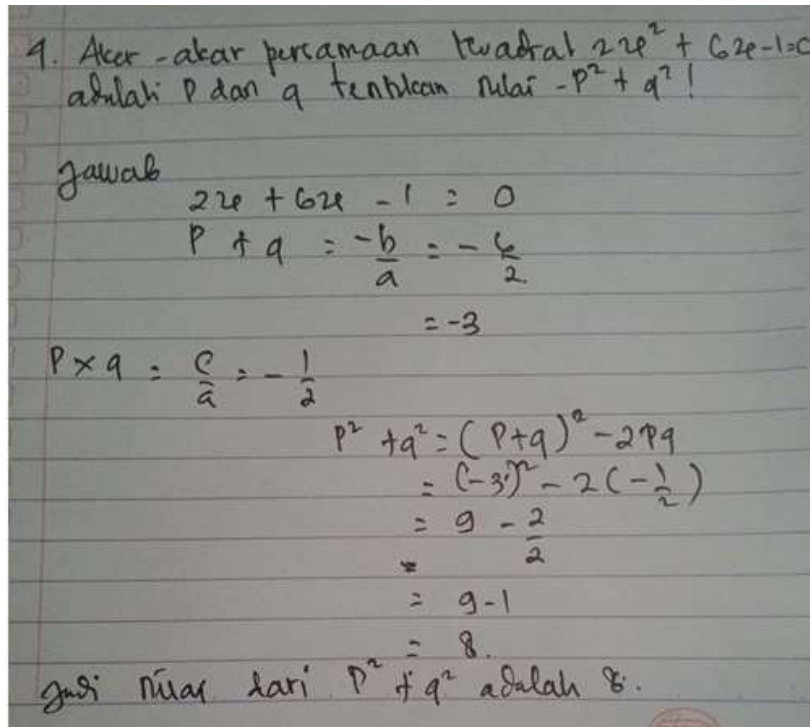 4. Akar-akar persamaan kuadrat 2x² + 6x-1=0
adalah P dan q tentukan nilai -P² + q²!
Jawab
2x + 6x - 1 = 0
P + q = -b/a = - 6/2
= -3
P × q = c/a = - 1/2
P² + q² = (P+q)² - 2Pq
= (-3)² - 2(-1/2)
= 9 - 2/2
= 9-1
= 8.
Jadi nilai dari P² + q² adalah 8.